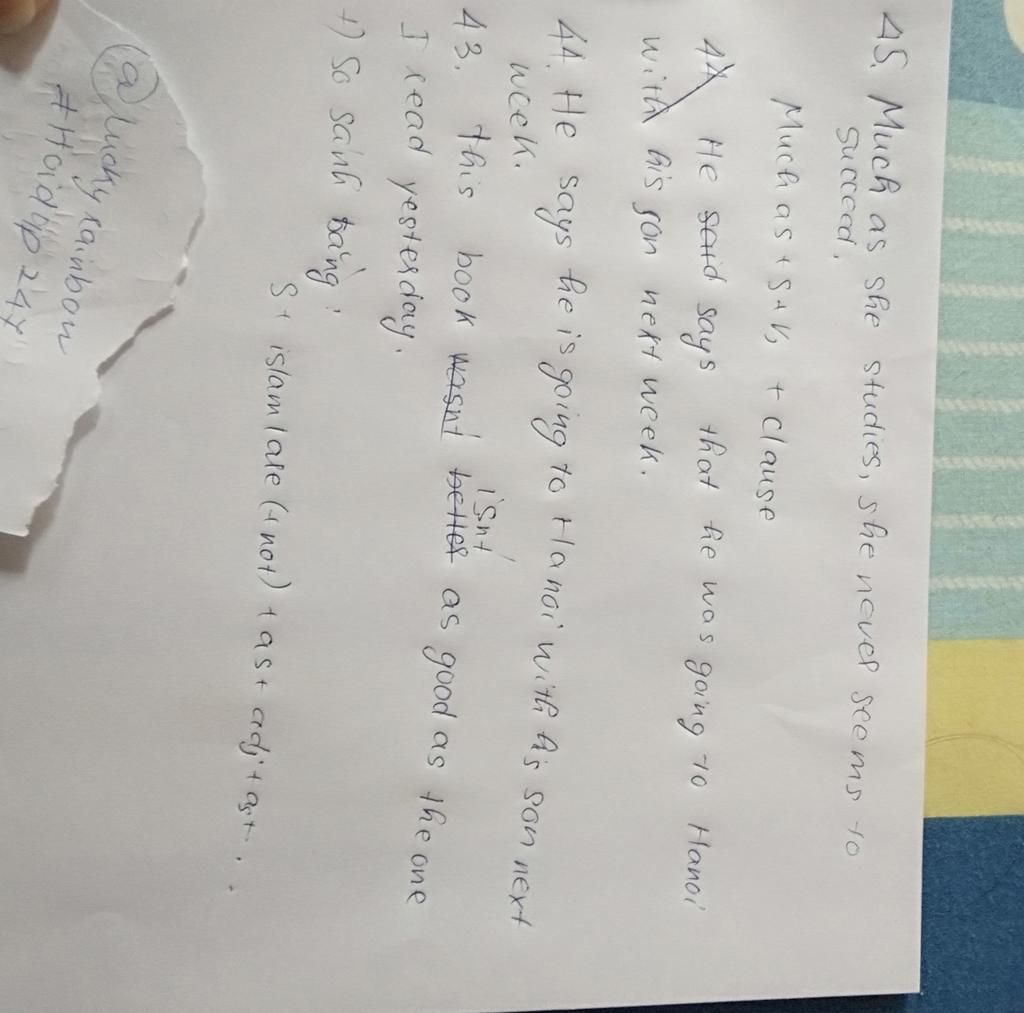 45. Much as she studies, she never seems to
succeed.
Much as + S + V, + clause
44 He said says that he was going to Hanoi
with his son next week.
44. He says he is going to Hanoi with his son next
week.
43. this book wasn't better isn't as good as the one
I read yesterday.
+) So sánh bằng:
S + is/am/are (+not) + as + adj + as + ...
@luckyrainbow
#Hoidap247